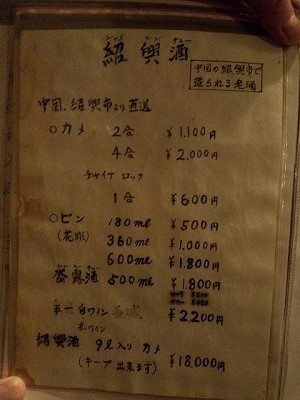 紹興酒
中国の紹興市で
造られる老酒
中国、紹興市より直送
○カメ 2合 ¥1,100円
4合 ¥2,000円
チャイナ ロック
1合 ¥600円
○ビン 180ml ¥500円
(花彫) 360ml ¥1,000円
600ml ¥1,800円
露酒 500ml ¥1,800円
白ワイン ¥2200円
赤ワイン
紹興酒 9ℓ入り カメ
(キープ出来ます) ¥18,000円